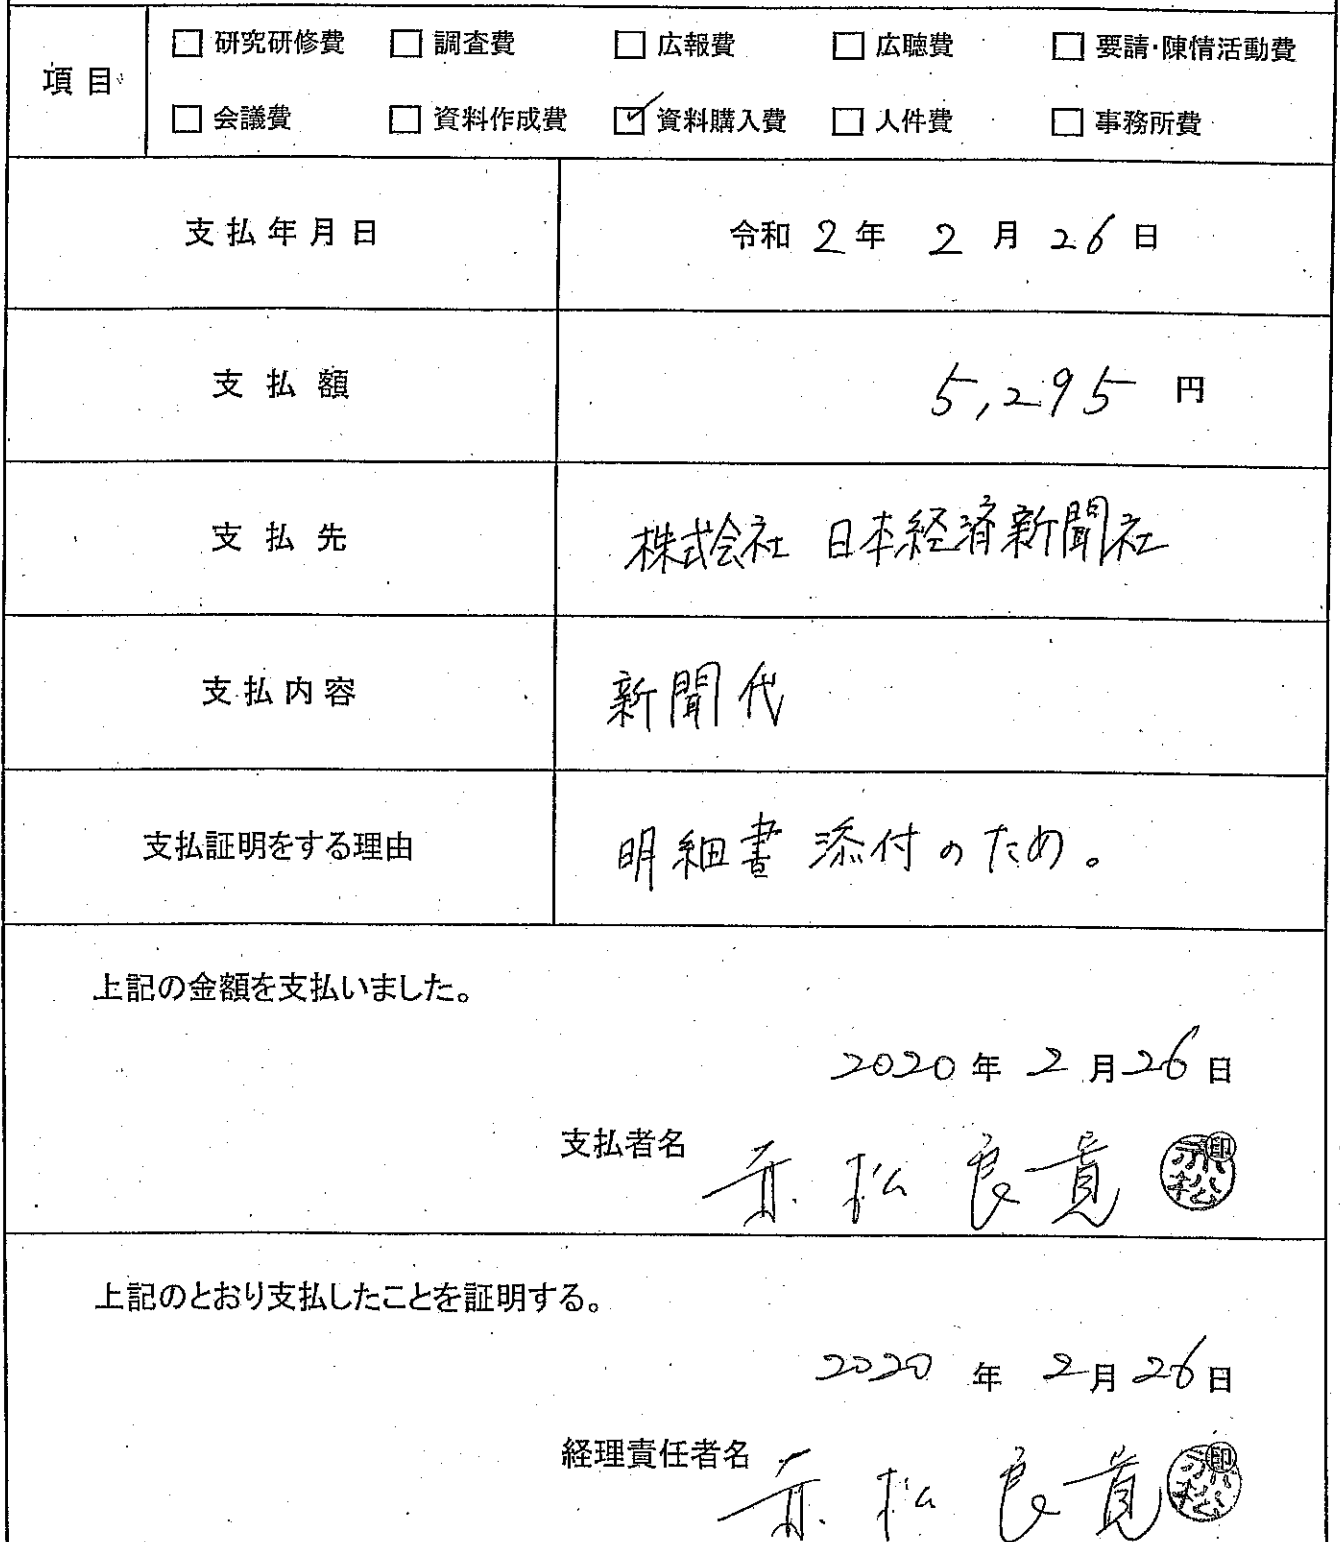 項目 □ 研究研修費 □ 調査費 □ 広報費 □ 広聴費 □ 要請・陳情活動費
□ 会議費 □ 資料作成費 ☑ 資料購入費 □ 人件費 □ 事務所費
支払年月日 令和 2 年 2 月 26 日
支払額 5,295 円
支払先 株式会社 日本経済新聞社
支払内容 新聞代
支払証明をする理由 明細書添付のため。
上記の金額を支払いました。
2020 年 2 月 26 日
支払者名 赤松良寛 印 赤松
上記のとおり支払したことを証明する。
2020 年 2 月 26 日
経理責任者名 赤松良寛 印 赤松